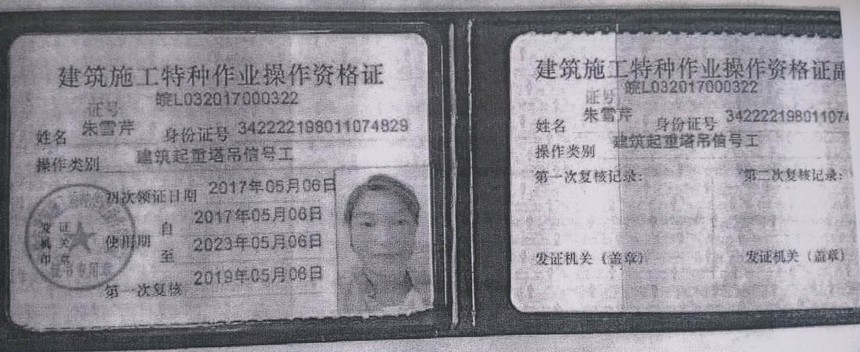 建筑施工特种作业操作资格证
证号 皖L032017000322
姓名 朱雪芹 身份证号 342222198011074829
操作类别 建筑起重塔吊信号工
初次领证日期 2017年05月06日
使用期 自 2017年05月06日
至 2023年05月06日
第一次复核 2019年05月06日
发证
机关
印章
证书专用章
建筑施工特种作业操作资格证副
证号 皖L032017000322
姓名 朱雪芹 身份证号 34222219801107
操作类别 建筑起重塔吊信号工
第一次复核记录: 第二次复核记录:
发证机关(盖章) 发证机关(盖章)